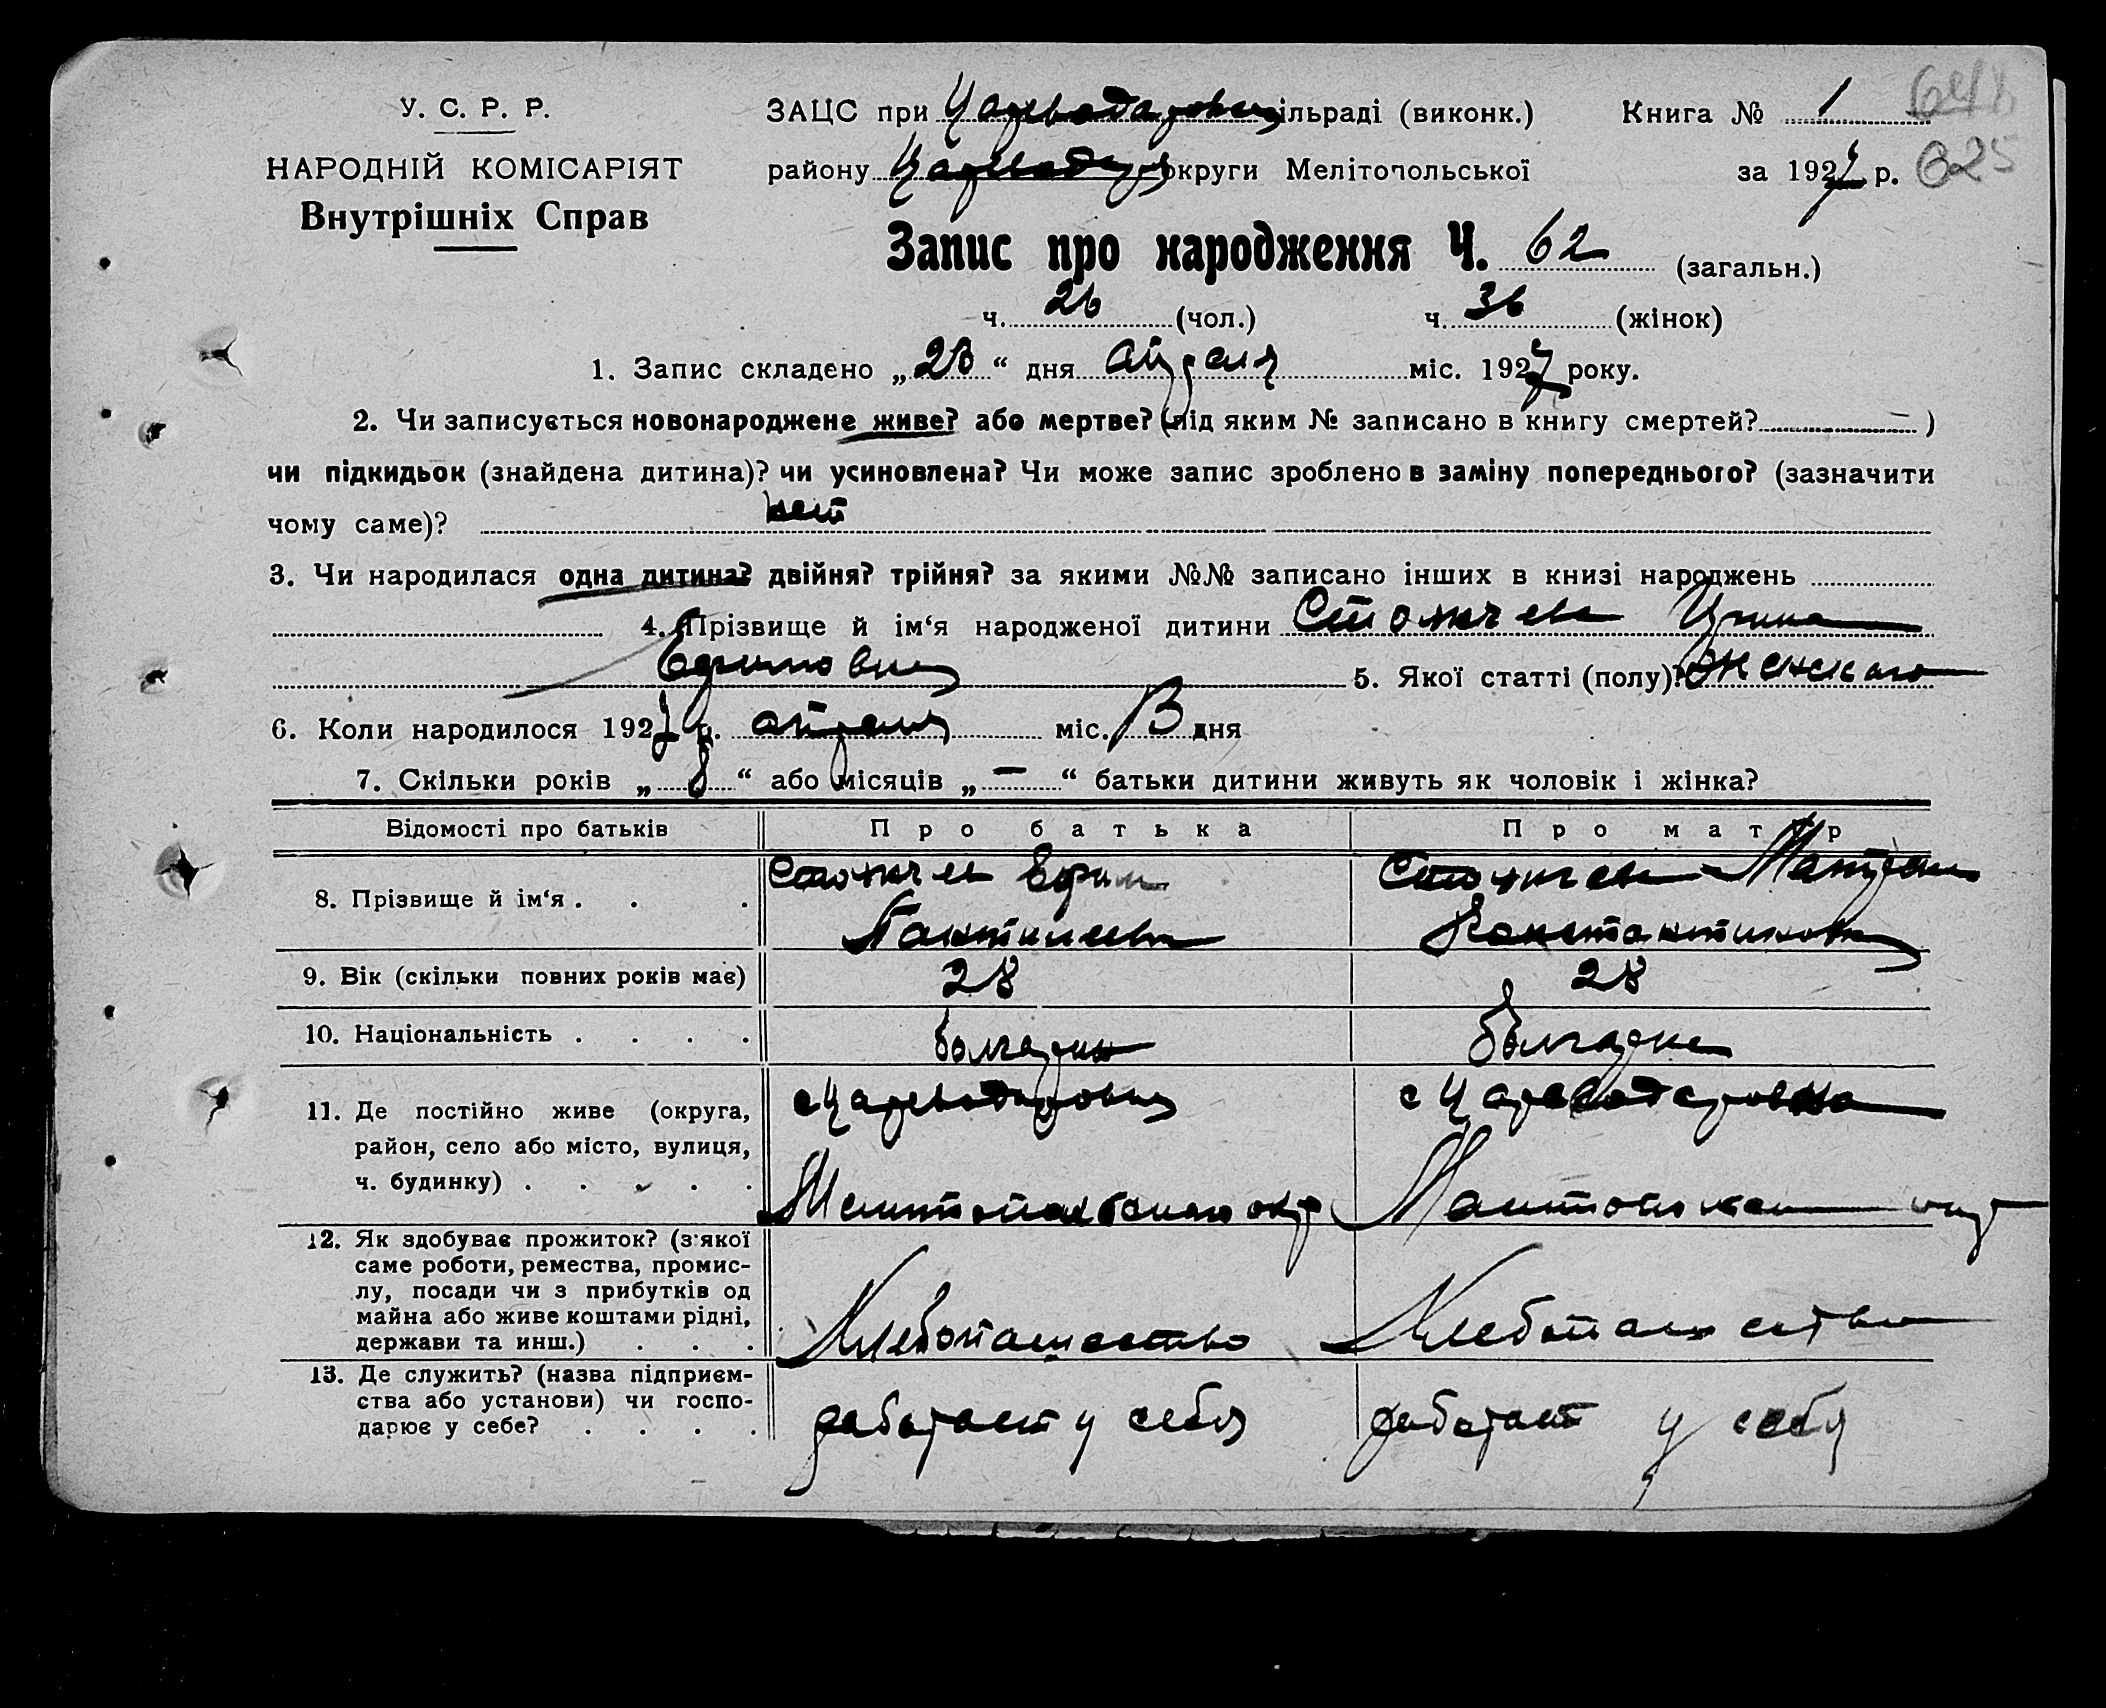 У. С. Р. Р.
НАРОДНІЙ КОМІСАРІЯТ
Внутрішніх Справ
ЗАЦС при Царевадаровец ільраді (виконк.) Книга № 1
району Цареводар округи Мелітопольської за 1927 р. 625
Запис про народження Ч. 62 (загальн.)
ч. 26 (чол.) ч. 36 (жінок)
1. Запис складено „ “ дня апреля міс. 1927 року.
2. Чи записується новонароджене живе? або мертве? (під яким № записано в книгу смертей? — )
чи підкидьок (знайдена дитина)? чи усиновлена? Чи може запис зроблено в заміну попереднього? (зазначити
чому саме)? нет
3. Чи народилася одна дитина? двійня? трійня? за якими №№ записано інших в книзі народжень
4. Прізвище й ім‘я народженої дитини Стоянчева Ирина
Ефимовна 5. Якої статті (полу)? женского
6. Коли народилося 1927 р. апреля міс. дня
7. Скільки років „ 8 “ або місяців „ — “ батьки дитини живуть як чоловік і жінка?
Відомості про батьків Про батька Про матір
8. Прізвище й ім‘я . . . Стоянчев Ефим Стоянчева Матрена
Пантилеев Константиновна
9. Вік (скільки повних років має) 28 28
10. Національність . . . . болгарин болгарка
11. Де постійно живе (округа, район, село або місто, вулиця, ч. будинку) . . . . . с Цареводаровка с Цареводаровка
Мелитопольского окр Мелитопольск окр
12. Як здобуває прожиток? (з якої саме роботи, ремества, промислу, посади чи з прибутків од майна або живе коштами рідні, держави та инш.) . . . Хлебопашество Хлебопашество
13. Де служить? (назва підприємства або установи) чи господарює у себе? . . . . работает у себя работает у себя